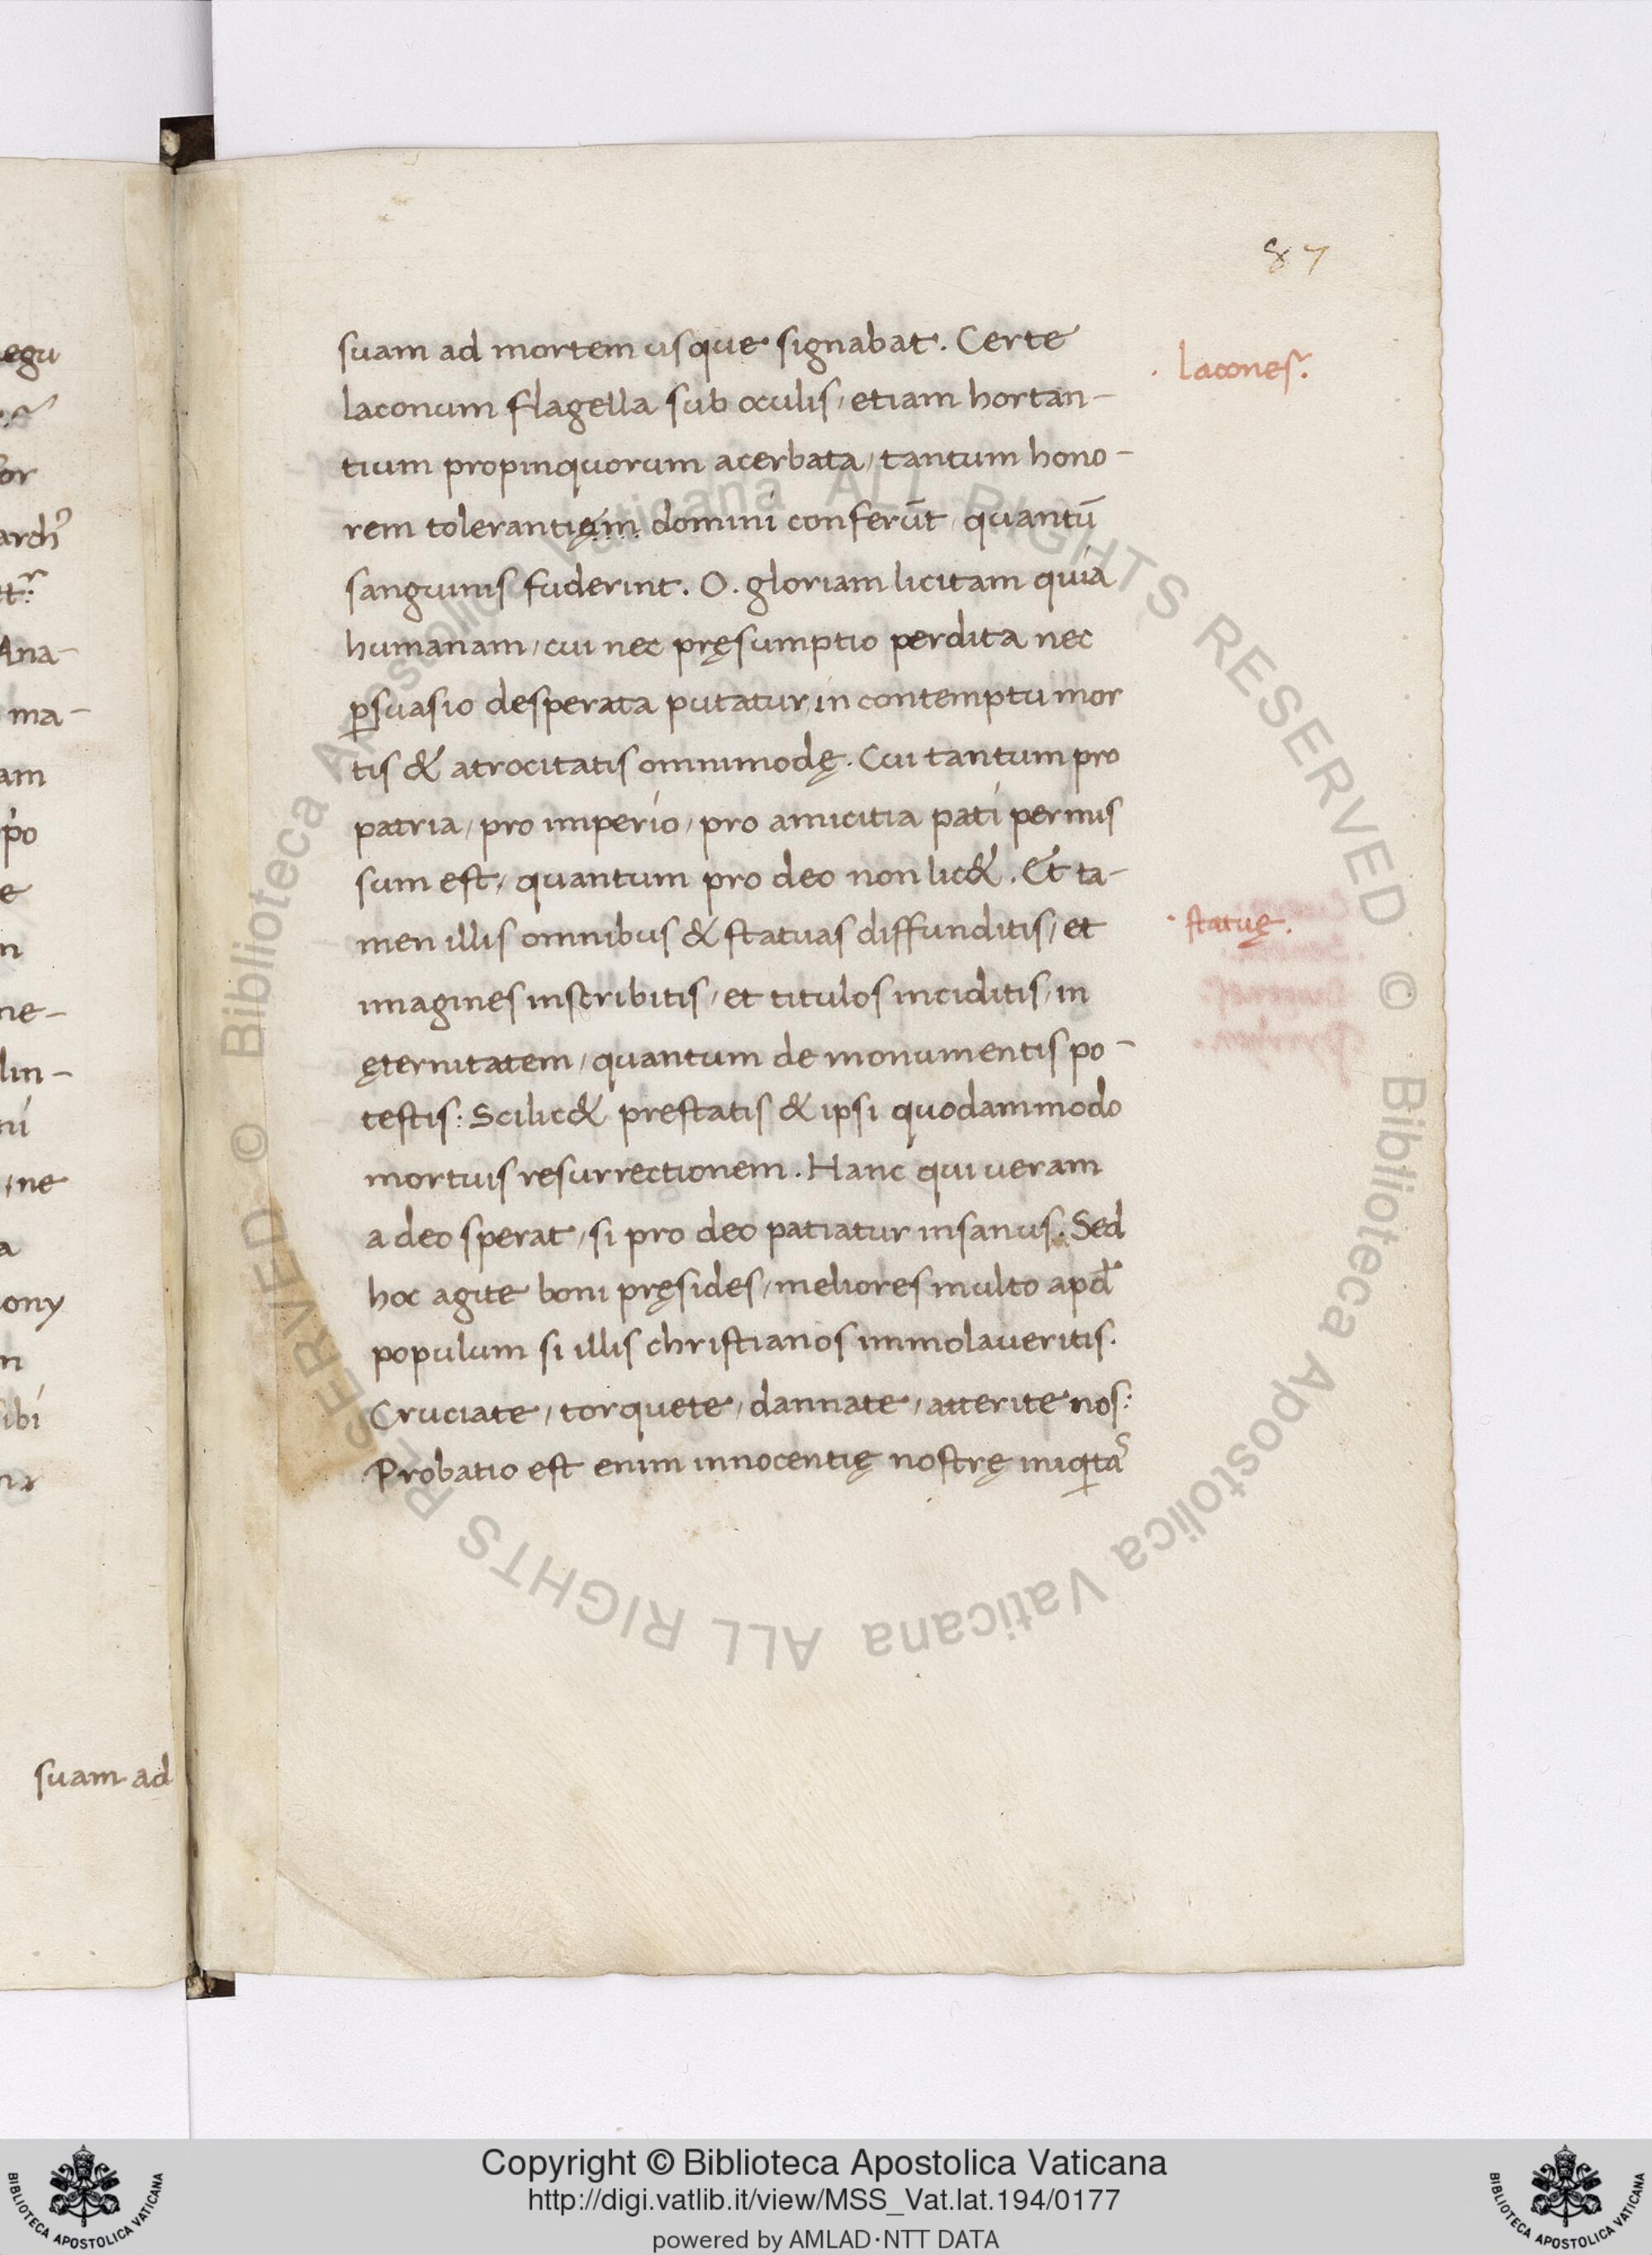 87
suam ad mortem usque signabat. Certe
laconum flagella sub oculis, etiam hortan-
tium propinquorum acerbata, tantum hono-
rem tolerantięm domini conferūt, quantū
sanguinis fuderint. O. gloriam licitam quia
humanam, cui nec pręsumptio perdita nec
ꝑsuasio desperata putatur, in contemptu mor
tis & atrocitatis omnimodę. Cui tantum pro
patria, pro imperio, pro amicitia pati permis
sum est, quantum pro deo non lic&. Et ta-
men illis omnibus & statuas diffunditis, et
imagines inscribitis, et titulos inciditis, in
ęternitatem, quantum de monumentis po-
testis: Scilic& prestatis & ipsi quodammodo
mortuis resurrectionem. Hanc qui ueram
a deo sperat, si pro deo patiatur insanus. Sed
hoc agite boni pręsides, meliores multo apd̄
populum si illis christianos immolaueritis.
Cruciate, torquete, dannate, atterite nos:
Probatio est enim innocentię nostrę iniq̲tas
. lacones.
. statuę.
egu
or
arch
Ana-
ma-
am
po
e
n
ne-
lin-
, ne
a
ony
n
ibi
suam ad
© Biblioteca Apostolica Vaticana ALL RIGHTS RESERVED © Biblioteca Apostolica Vaticana ALL RIGHTS RESERVED
Copyright © Biblioteca Apostolica Vaticana
http://digi.vatlib.it/view/MSS_Vat.lat.194/0177
powered by AMLAD·NTT DATA
BIBLIOTECA APOSTOLICA VATICANA
BIBLIOTECA APOSTOLICA VATICANA